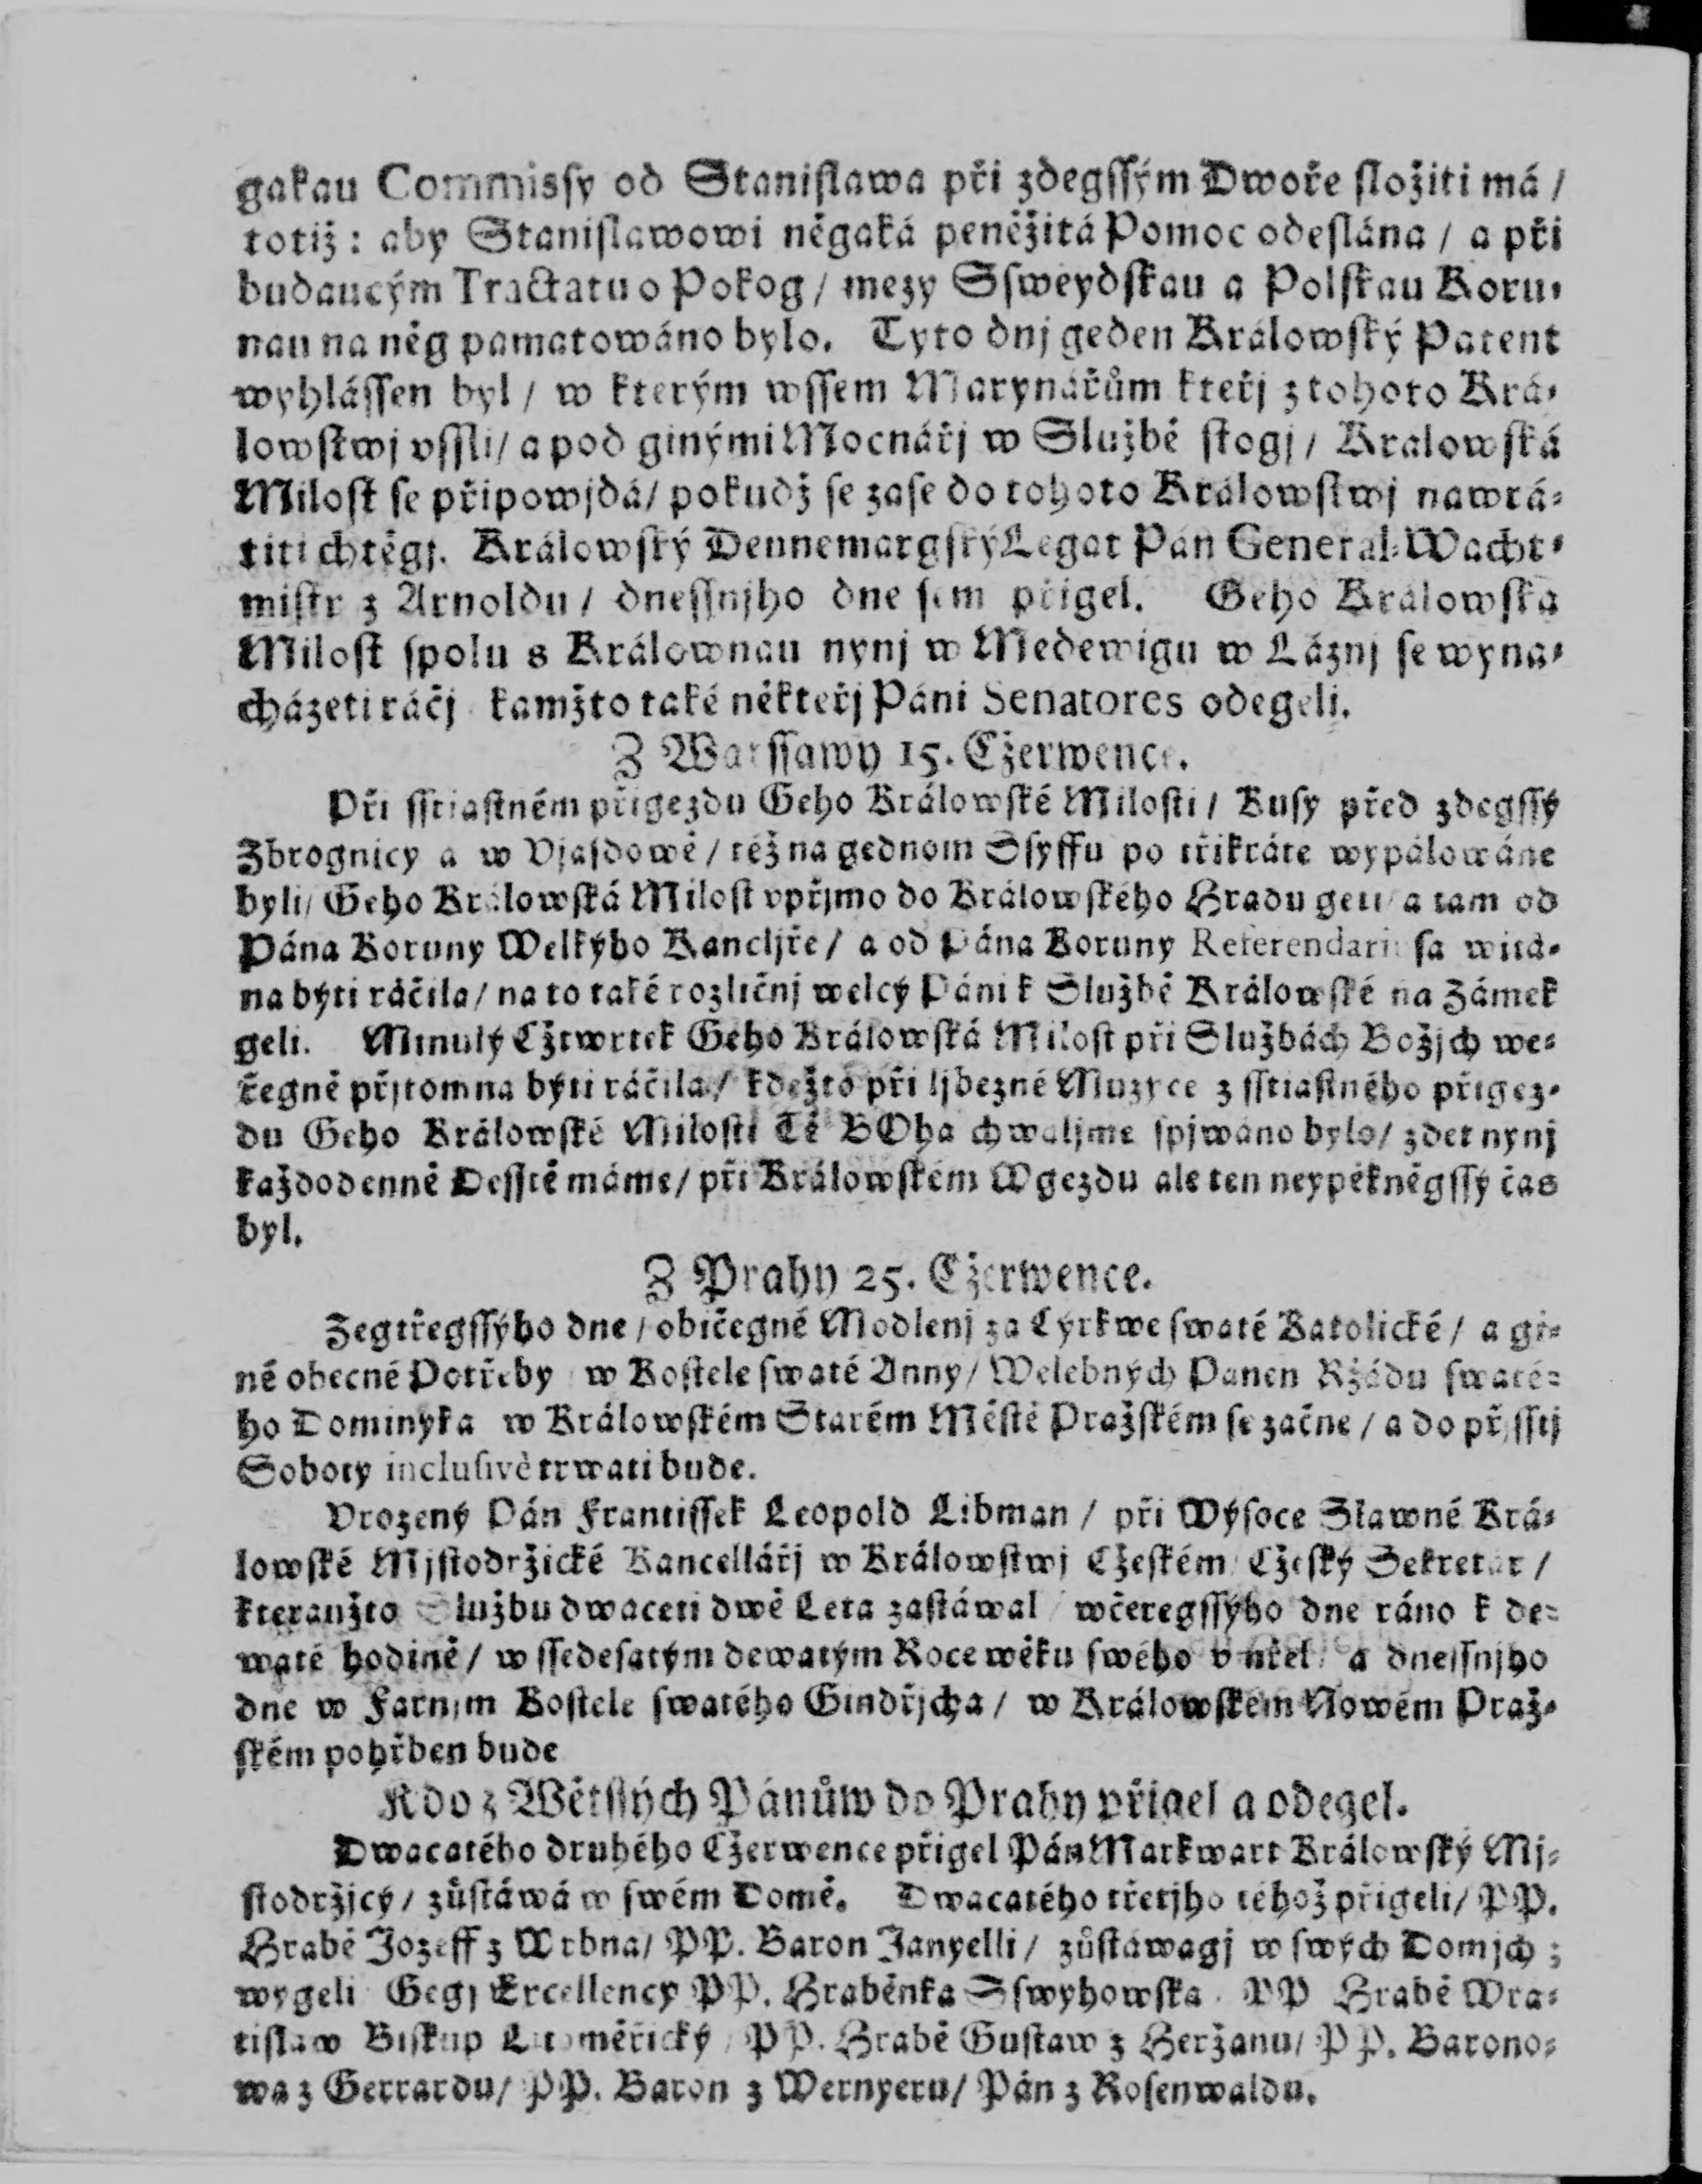 gakau Commissy od Stanislawa při zdegssým Dwoře složiti má /
totiž: aby Stanislawowi něgaká peněžitá Pomoc odeslána / a při
budaucým Tractatu o Pokog / mezy Ssweydskau a Polskau Koru-
nau na něg pamatowáno bylo. Tyto dnj geden Králowský Patent
wyhlássen byl / w kterým wssem Marynářům kteřj z tohoto Krá-
lowstwj vssli / a pod ginými Mocnářj w Službě stogj / Kralowská
Milost se připowjdá / pokudž se zase do tohoto Králowstwj nawrá-
titi chtěgj. Králowský Dennemargský Legat Pán General-Wacht-
mistr z Arnoldu / dnessnjho dne sem přigel. Geho Králowska
Milost spolu s Králownau nynj w Medewigu w Láznj se wyna-
cházeti ráčj kamžto také někteřj Páni Senatores odegeli.
Z Warssawy 15. Cžerwence.
Při sstiastném přigezdu Geho Králowské Milosti / Kusy před zdegssý
Zbrognicy a w Vjasdowě / též na gednom Ssyffu po třikráte wypálowáne
byli / Geho Králowská Milost vpřjmo do Králowského Hradu geti / a tam od
Pána Koruny Welkýho Kancljře / a od Pána Koruny Referendari sa witá-
na býti ráčila / na to také rozličnj welcý Páni k Službě Králowské na Zámek
geli. Minulý Cžtwrtek Geho Králowská Milost při Službách Božjch we-
řegně přjtomna býti ráčila / kdežto při ljbezné Muzyce z sstiastného přigez-
du Geho Králowské Milosti Tě BOha chwaljme spjwáno bylo / zdet nynj
každodenně Desstě máme / při Králowském Wgezdu ale ten neypěkněgssý čas
byl.
Z Prahy 25. Cžerwence.
Zegtřegssýho dne / običegné Modlenj za Cyrkwe swaté Katolické / a gi-
né obecné Potřeby w Kostele swaté Anny / Welebných Panen Ržádu swaté-
ho Dominyka w Králowském Starém Městě Pražském se začne / a do přjsstj
Soboty inclusivè trwati bude.
Vrozený Pán Frantissek Leopold Libman / při Wýsoce Sławné Krá-
lowské Mjstodržické Kancellářj w Králowstwj Cžeském Cžeský Sekretar /
kteraužto Službu dwaceti dwě Leta zastáwal / wčeregssýho dne ráno k de-
waté hodině / w ssedesatým dewatým Roce wěku swého vmřel / a dnessnjho
dne w Farnjm Kostele swatého Gindřjcha / w Králowském Nowém Praž-
ském pohřben bude
Kdo z Wětssých Pánůw do Prahy přigel a odegel.
Dwacatého druhého Cžerwence přigel Pán Markwart Králowský Mj-
stodržjcý / zůstáwá w swém Domě. Dwacatého třetjho téhož přigeli / PP.
Hrabě Jozeff z Wrbna / PP. Baron Janyelli / zůstáwagj w swých Domjch ;
wygeli Gegj Excellency PP. Hraběnka Sswyhowska PP Hrabě Wra-
tislaw Biskup Litoměřický / PP. Hrabě Gustaw z Heržanu / PP. Barono-
wa z Gerrardu / PP. Baron z Wernyeru / Pán z Rosenwaldu.